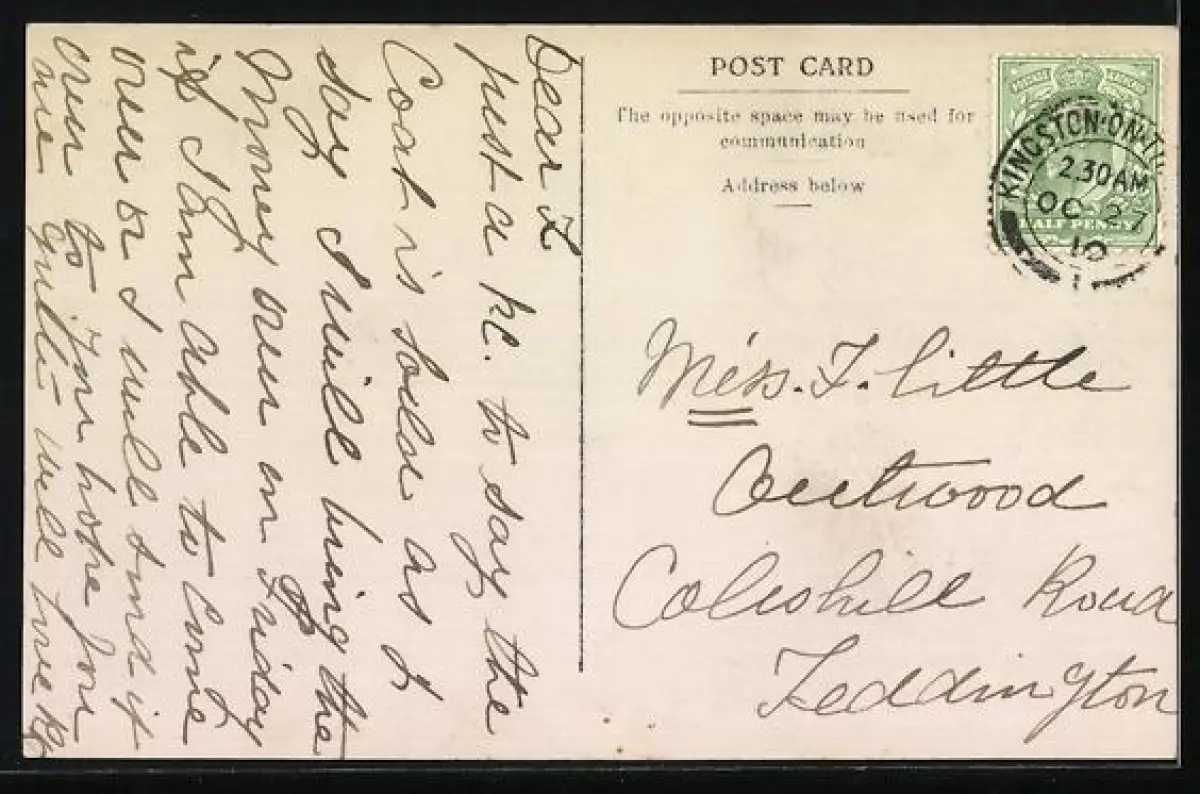 Dear F
just a pc. to say the
Coat is sold as I
say I will bring the
Money over on Friday
if I am able to come
over or I will send it
over to you hope you
are quite well love
POST CARD
The opposite space may be used for
communication
Address below
KINGSTON-ON-
2.30AM
OC 27
10
HALF PENNY
Miss. F. Little
Coleshill Road
Teddington